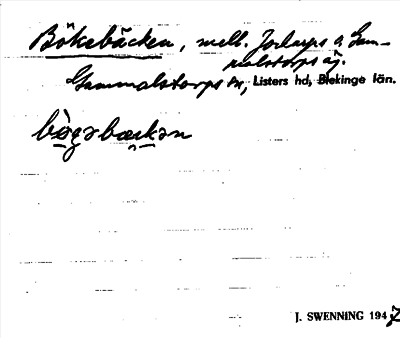 Bökebäcken, mell. Jordarps o. Gam-
malstorps äg.
Gammalstorps sn, Listers hd, Blekinge län.
bògəbœkən
J. SWENNING 1947